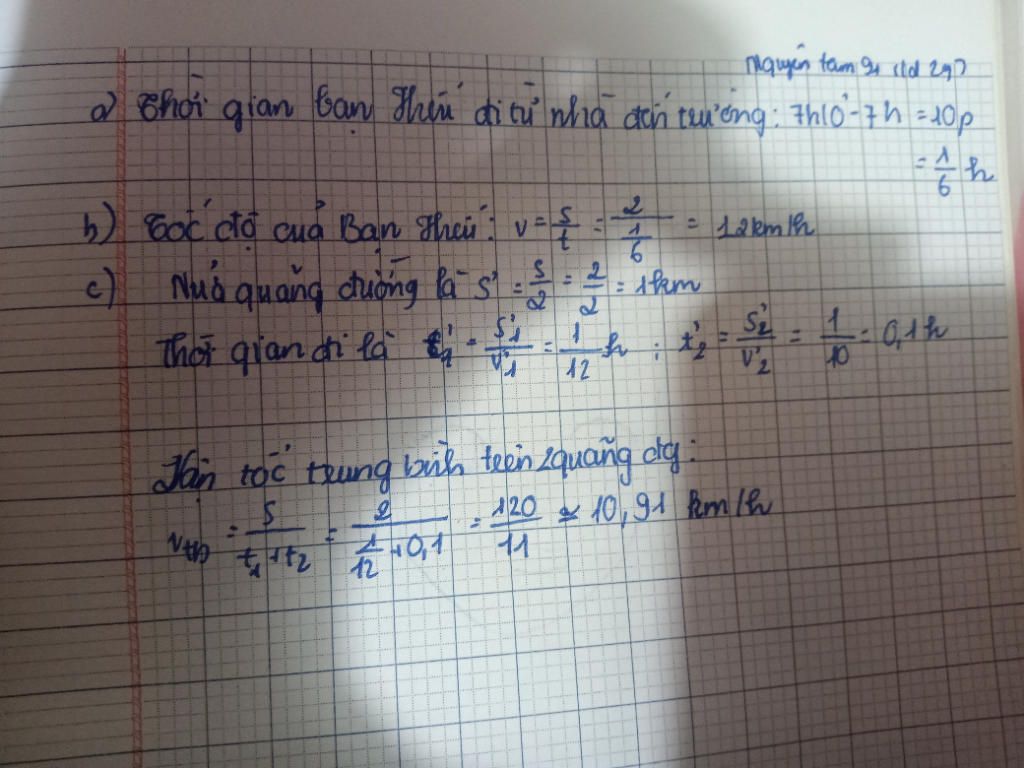 a) Thời gian bạn Hiếu đi từ nhà đến trường: 7h10' - 7h = 10p
= 1/6 h
b) Tốc độ của Bạn Hiếu: v = s/t = 2/(1/6) = 12km/h
c) Nửa quãng đường là s' = s/2 = 2/2 = 1km
Thời gian đi là t'1 = s'1/v'1 = 1/12 h ; t'2 = s'2/v'2 = 1/10 = 0,1h
Vận tốc trung bình trên 2 quãng đg:
vtb = s/(t1+t2) = 2/(1/12+0,1) = 120/11 ≃ 10,91 km/h